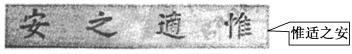 安之適惟
惟适之安